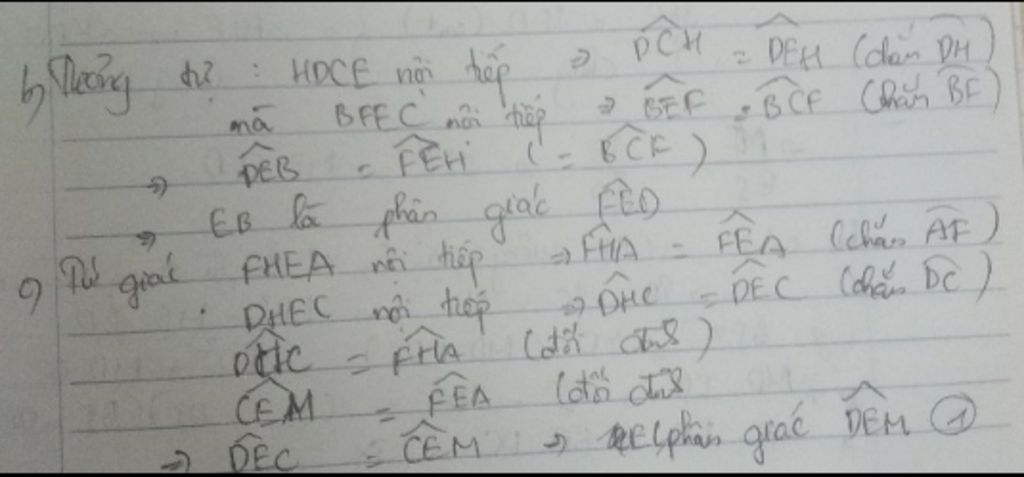 b) Tương tự : HDCE nội tiếp ⇒ \widehat{DCH} = \widehat{DEH} (chắn \widehat{DH})
mà BFEC nội tiếp ⇒ \widehat{BEF} = \widehat{BCF} (chắn \widehat{BF})
⇒ \widehat{DEB} = \widehat{FEH} (= \widehat{BCF})
⇒ EB là phân giác \widehat{FED}
c) Tứ giác FHEA nội tiếp ⇒ \widehat{FHA} = \widehat{FEA} (chắn \widehat{AF})
DHEC nội tiếp ⇒ \widehat{DHC} = \widehat{DEC} (chắn \widehat{DC})
\widehat{DHC} = \widehat{FHA} (đối đỉnh)
\widehat{CEM} = \widehat{FEA} (đối đỉnh
⇒ \widehat{DEC} = \widehat{CEM} ⇒ EC phân giác \widehat{DEM} ①